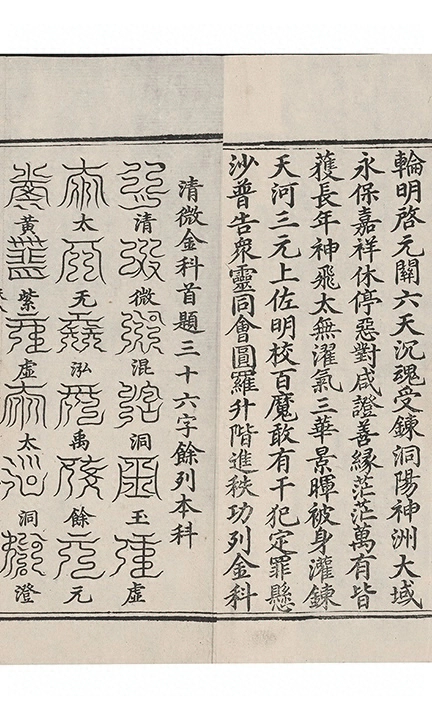 輪明啓元關六天沉魂受鍊洞陽神洲大域
永保嘉祥休停惡對咸證善緣茫茫萬有皆
獲長年神飛太無濯氣三華景暉被身灌鍊
天河三元上佐明校百魔敢有干犯定罪懸
沙普告衆靈同會圓羅升階進秩功列金科
清微金科首題三十六字餘列本科
清微混洞玉虛
太无泓禹餘元
黃紫虛太洞澄